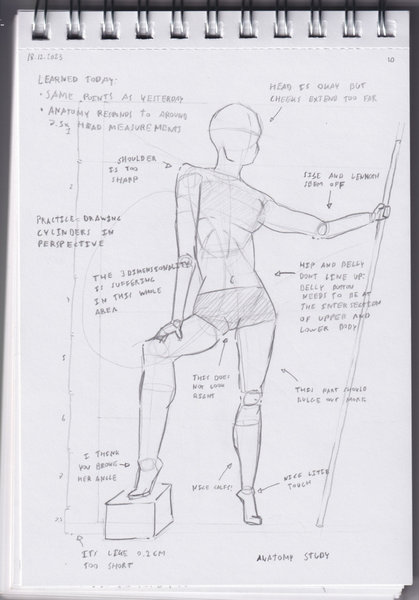 18.12.2023
10
LEARNED TODAY:
• SAME POINTS AS YESTERDAY
• ANATOMY RESPONDS TO AROUND
7.5x HEAD MEASUREMENTS
HEAD IS OKAY BUT
CHEEKS EXTEND TOO FAR
SHOULDER
IS TOO
SHARP
SIZE AND LENGTH
SEEM OFF
PRACTICE: DRAWING
CYLINDERS IN
PERSPECTIVE
THE 3 DIMENSIONALITY
IS SUFFERING
IN THIS WHOLE
AREA
HIP AND BELLY
DONT LINE UP:
BELLY BUTTON
NEEDS TO BE AT
THE INTERSECTION
OF UPPER AND
LOWER BODY
THIS DOES
NOT LOOK
RIGHT
THIS PART SHOULD
BULGE OUT MORE
I THINK
YOU BROKE
HER ANGLE
NICE CALFS!
NICE LITTLE
TOUCH
ITS LIKE 0.2 CM
TOO SHORT
ANATOMY STUDY
1
2
3
4
5
6
7
7.5